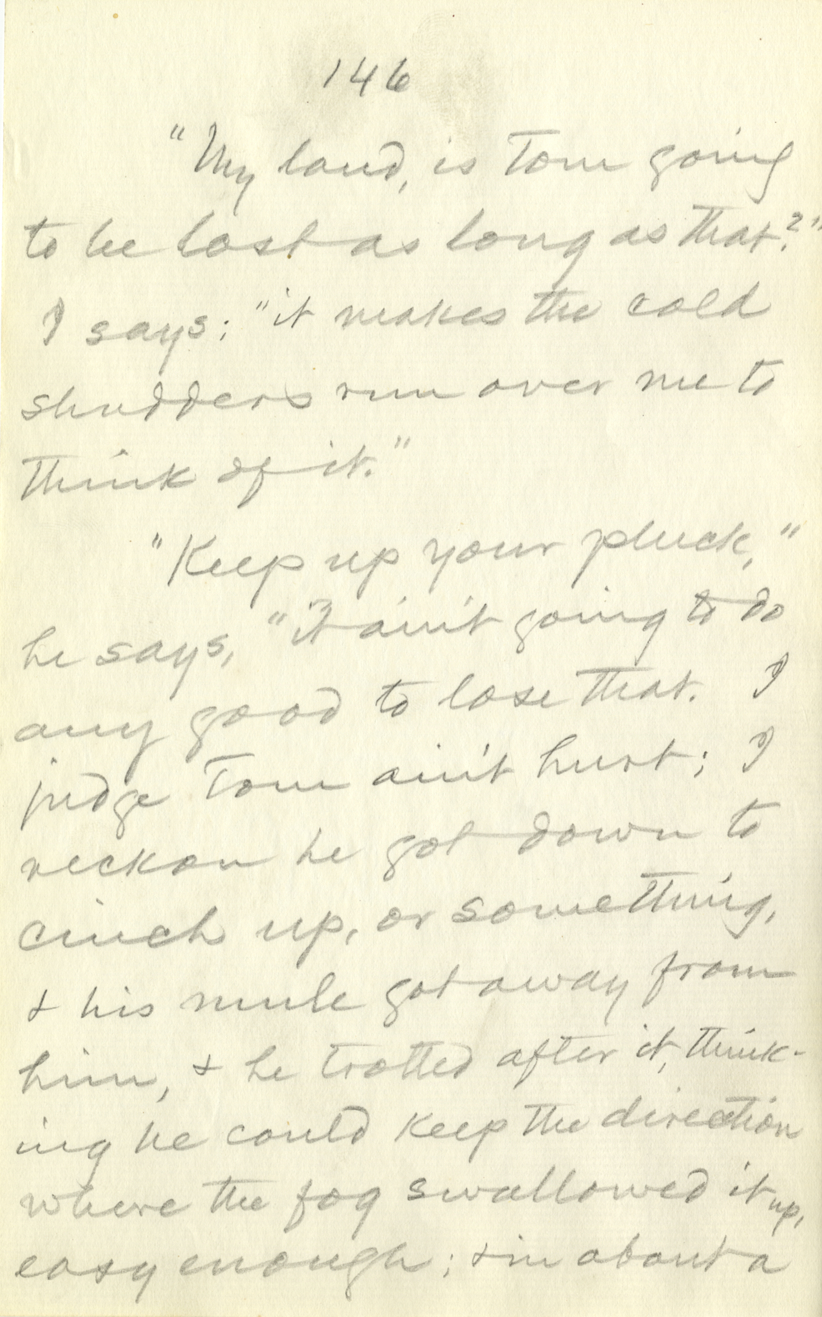 146
"My land, is Tom going
to be lost as long as that?"
I says; "it makes the cold
shudders run over me to
think of it."
"Keep up your pluck,"
he says, "it ain't going to do
any good to lose that. I
judge Tom ain't hurt; I
reckon he got down to
cinch up, or something,
& his mule got away from
him, & he trotted after it, think-
ing he could keep the direction
where the fog swallowed it up,
easy enough; & in about a